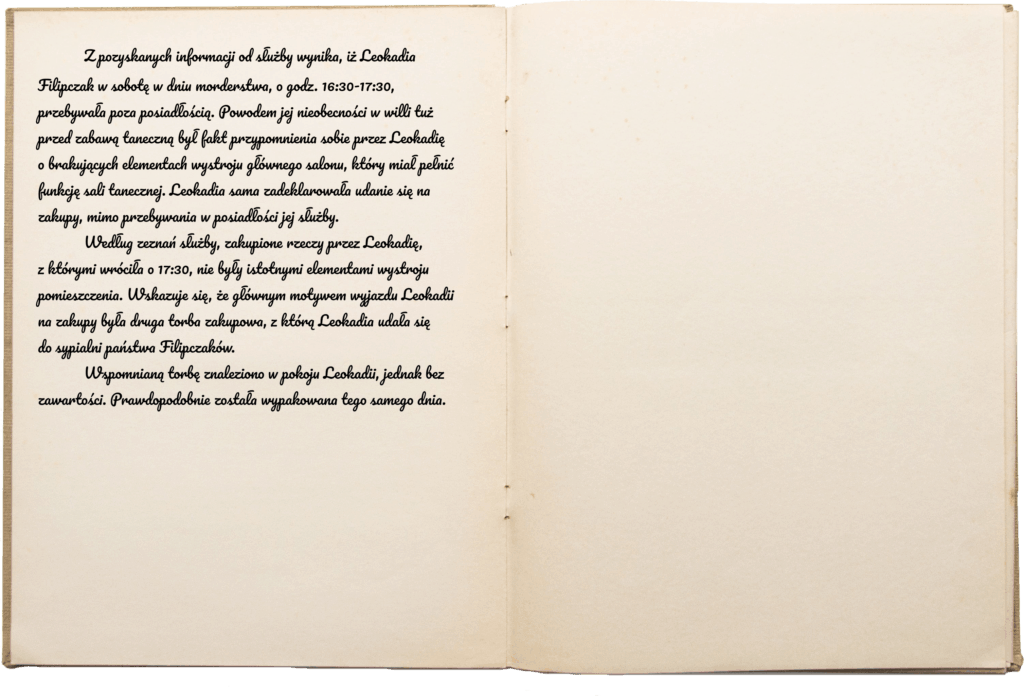 Z pozyskanych informacji od służby wynika, iż Leokadia
Filipczak w sobotę w dniu morderstwa, o godz. 16:30-17:30,
przebywała poza posiadłością. Powodem jej nieobecności w willi tuż
przed zabawą taneczną był fakt przypomnienia sobie przez Leokadię
o brakujących elementach wystroju głównego salonu, który miał pełnić
funkcję sali tanecznej. Leokadia sama zadeklarowała udanie się na
zakupy, mimo przebywania w posiadłości jej służby.
Według zeznań służby, zakupione rzeczy przez Leokadię,
z którymi wróciła o 17:30, nie były istotnymi elementami wystroju
pomieszczenia. Wskazuje się, że głównym motywem wyjazdu Leokadii
na zakupy była druga torba zakupowa, z którą Leokadia udała się
do sypialni państwa Filipczaków.
Wspomnianą torbę znaleziono w pokoju Leokadii, jednak bez
zawartości. Prawdopodobnie została wypakowana tego samego dnia.